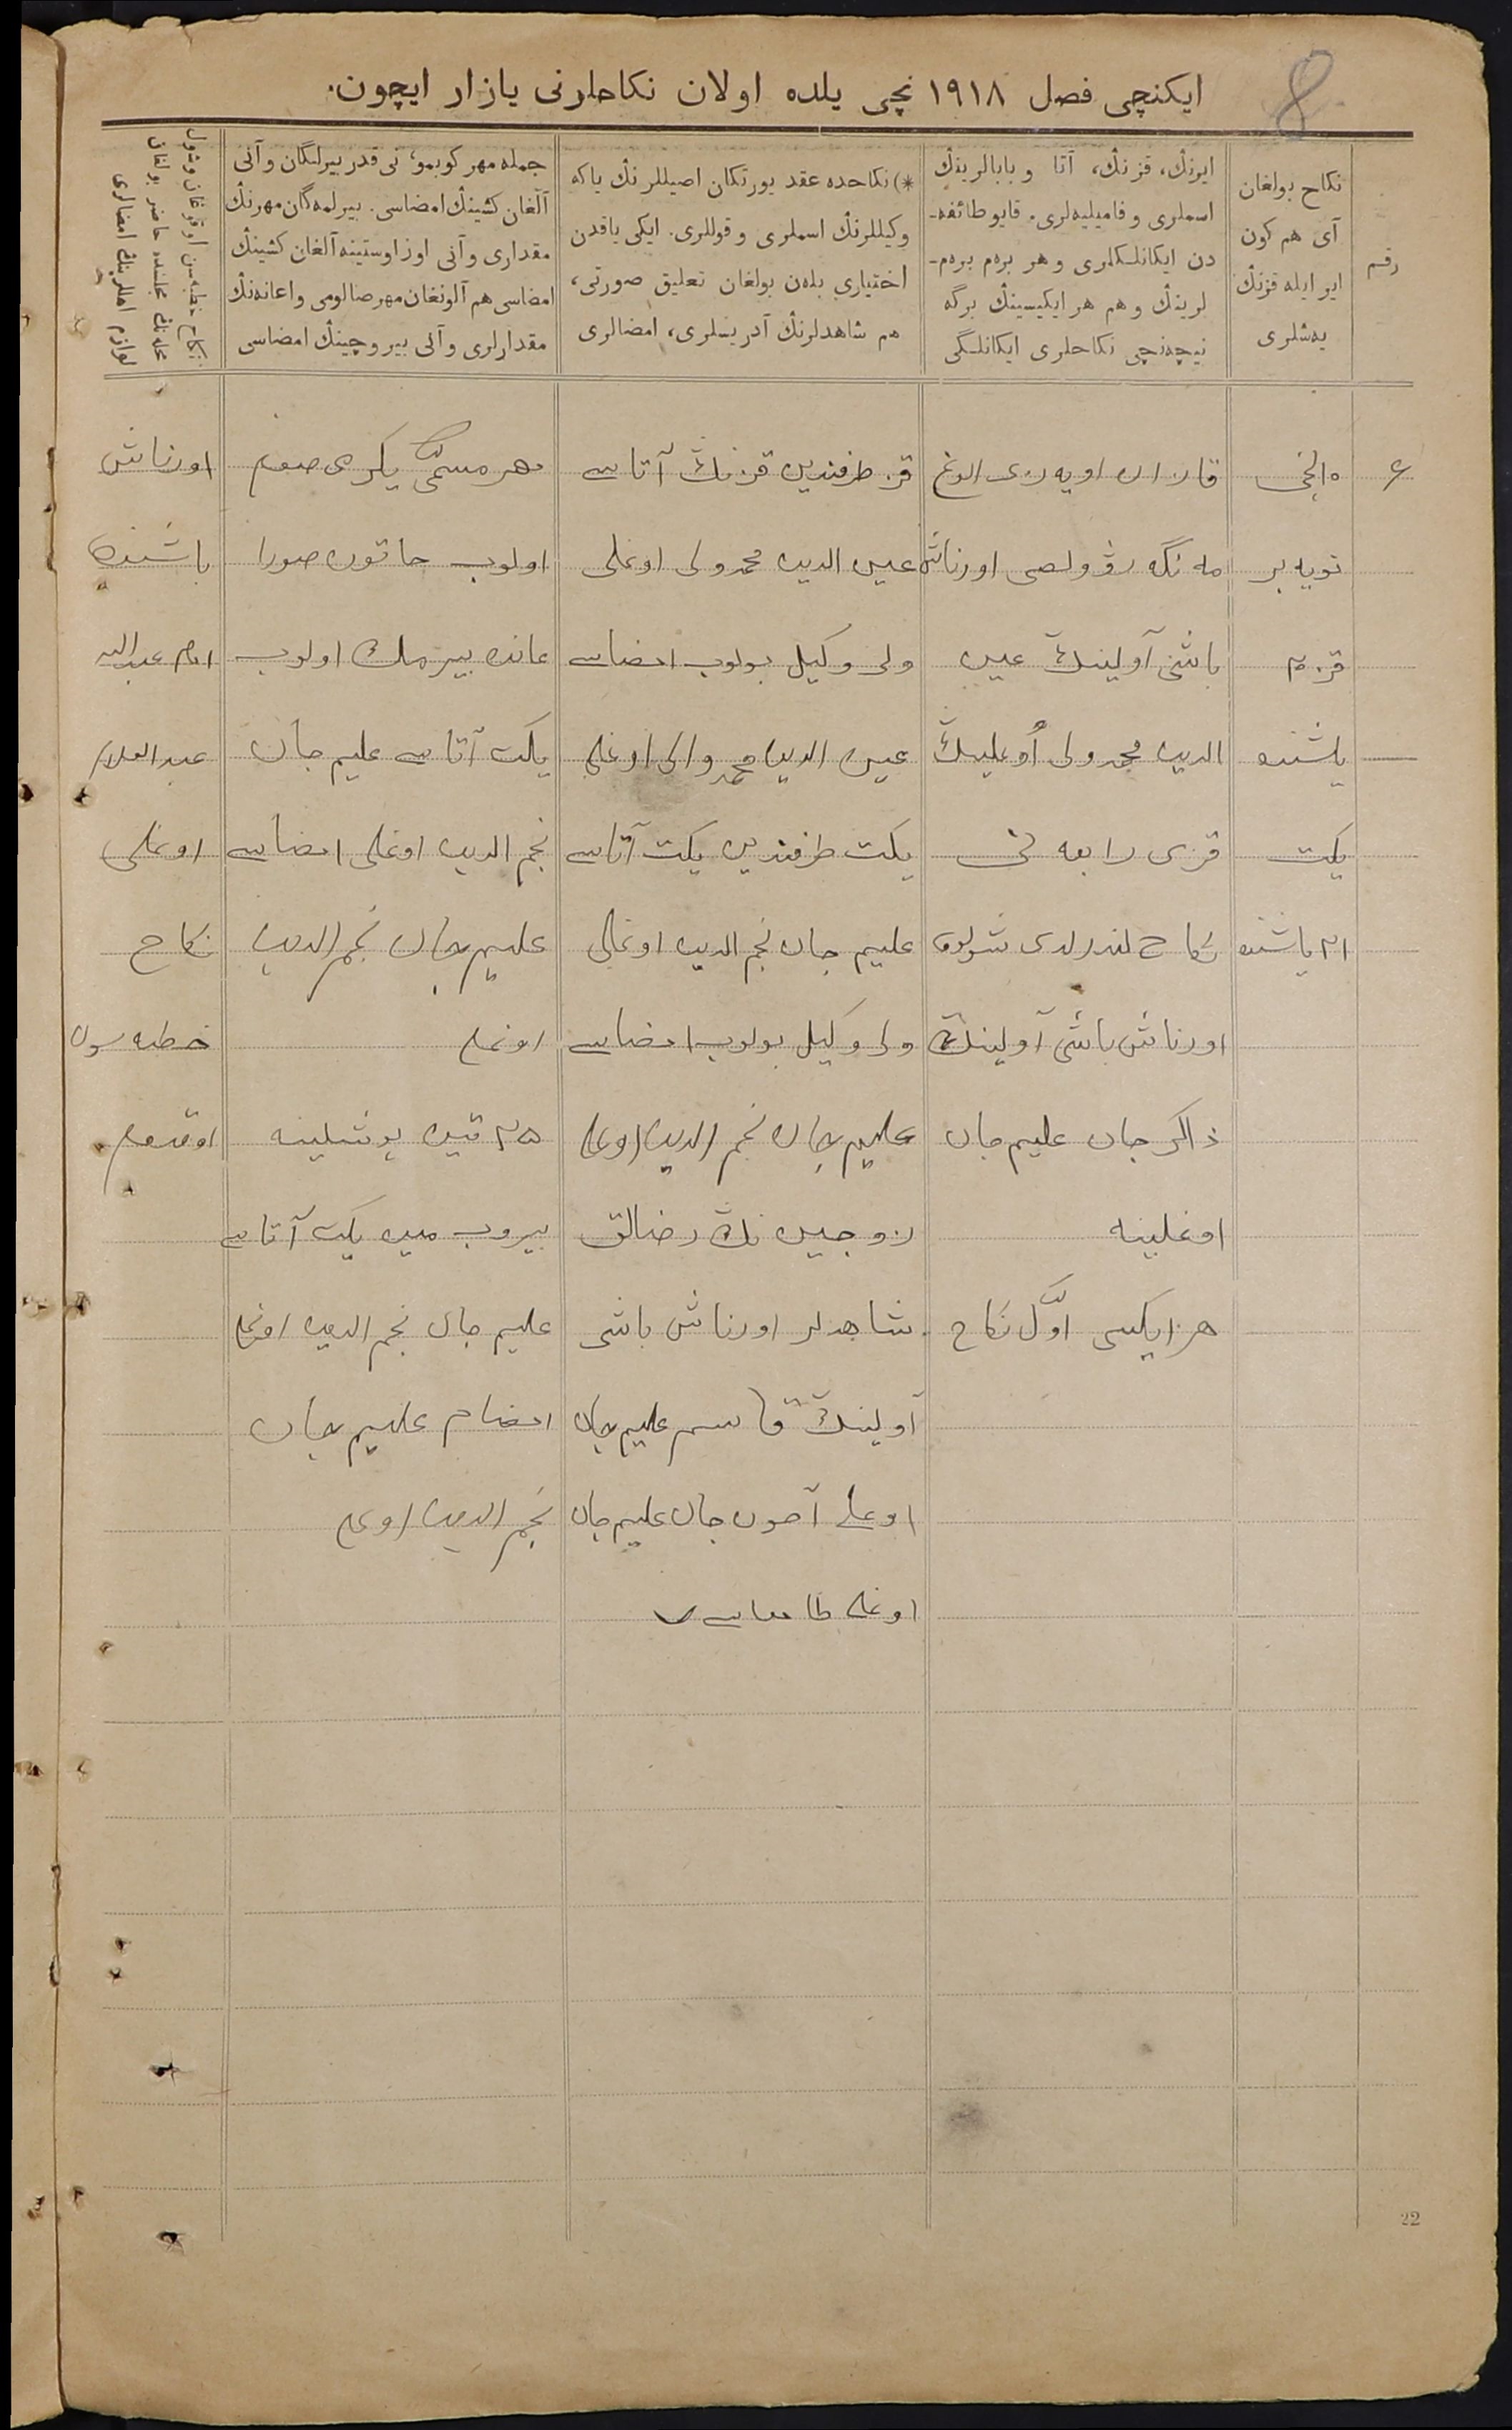 ایکنچی فصل ۱۹۱۸ نچی یلده اولان نکاحلرنی یازار ایچون.
8
رقم
نکاح بولغان
آی هم کون
ایر ایله قزنڭ
یەشلری
ایرنڭ، قزنڭ، آتا و بابالرینڭ
اسملری و فامیلیەلری. قایو طائفە-
دن ایکانلکلری و هر برەم برەم-
لرینڭ و هم هر ایکیسینڭ برگه
نیچەنچی نکاحلری ایکانلگی
*) نکاحده عقد یورتکان اصیللرنڭ یاکه
وکیللرنڭ اسملری و قوللری. ایکی یاقدن
اختیاری بلەن بولغان تعلیق صورتی،
هم شاهدلرنڭ آدریسلری، امضالری
جمله مهر کوبمو، نی قدر بیرلگان و آنی
آلغان کشینڭ امضاسی. بیرلمەگان مهرنڭ
مقداری و آنی اوز اوستینه آلغان کشینڭ
امضاسی هم آلونغان مهر صالومی و اعانەنڭ
مقدارلری و آنی بیروچینڭ امضاسی
نکاح خطبەسن اوقوغان و شول
محلەنڭ مجلسنده حاضر بولغان
لوازم اهللرینڭ امضالری
۵ انچی
تویه بر
قز ۲۰
یاشنده
یکت
۲۱ یاشنده
قازان اویه زی الوغ
مه نگر ۋولصی اورناش
باشی آولینڭ عین
الدین محمدولی اوغلینڭ
قزی رابعه نی
نکاح لندرلدی شولوق
اورناش باشی آولینڭ
ذاکرجان علیم جان
اوغلینه
هر ایکیسی اوّل نکاح
قز طرفندین قزنڭ آتاسی
عین الدین محمدولی اوغلی
ولی وکیل بولوب امضاسی
عین الدین محمد والی اوغلی
یکت طرفندین یکت آتاسی
علیم جان نجم الدین اوغلی
ولی وکیل بولوب امضاسی
علیم جان نجم الدین اوغلی
زوجین نڭ رضالق
شاهدلر اورناش باشی
آولینڭ قاسم علیم جان
اوغلی آصون جان علیم جان
اوغلی
مهر مسمّی یکرمی صوم
اولوب خاتون صورا
عانده بیرمك اولوب
یکت آتاسی علیم جان
نجم الدین اوغلی امضاسی
علیم جان نجم الدین
اوغلی
۲۵ تین پوشلینه
بیروب مین یکت آتاسی
علیم جان نجم الدین اوغلی
امضام علیم جان
نجم الدین اوغلی
اورناش
باشنده
امام عبدالله
عبدالعلام
اوغلی
نکاح
خطبه سون
اوقدم
22